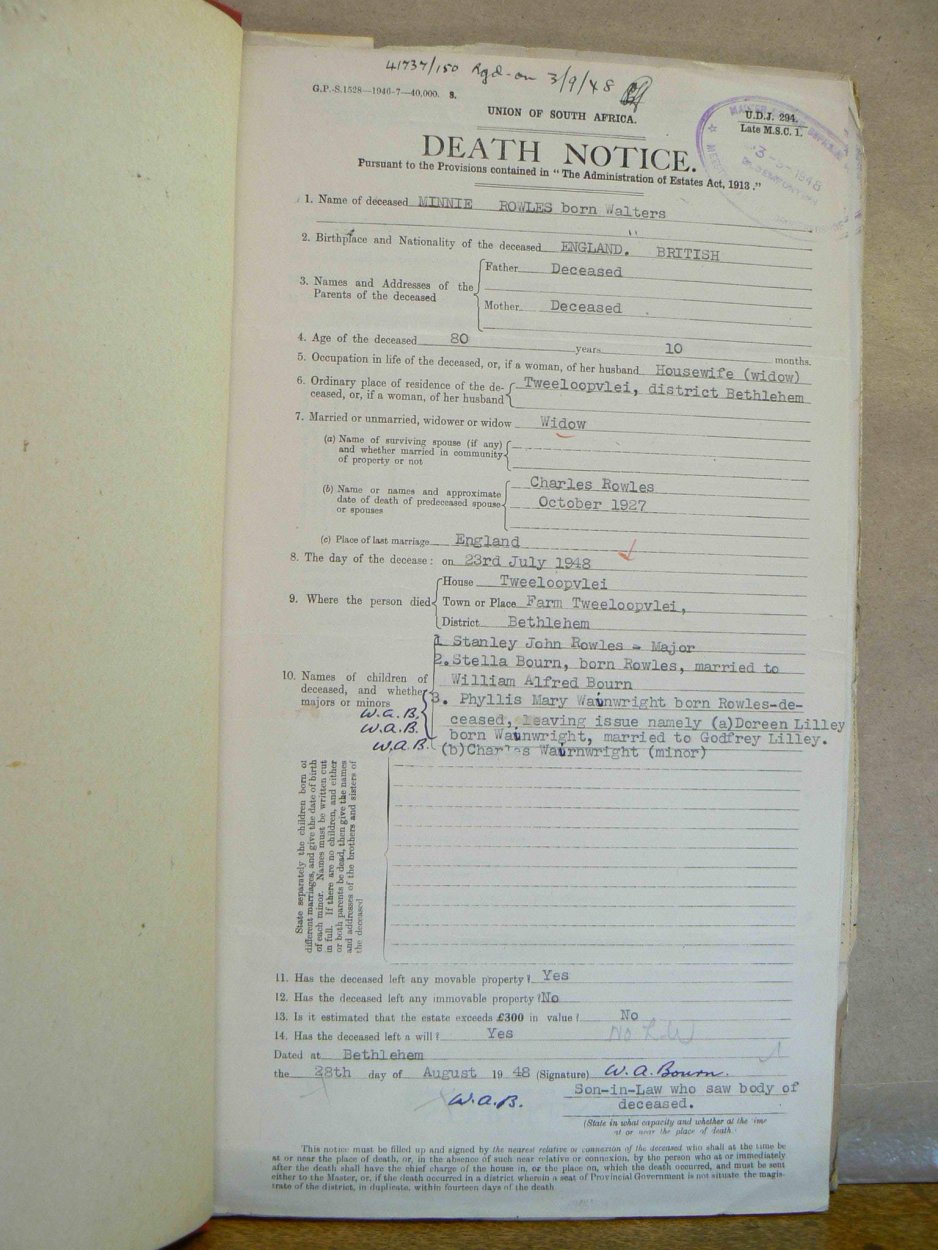 41737/150 Rgd-on 3/9/48
G.P.-S.1528—1946-7—40,000. S.
UNION OF SOUTH AFRICA.
U.D.J. 294.
Late M.S.C. 1.
DEATH NOTICE.
Pursuant to the Provisions contained in "The Administration of Estates Act, 1913."
1. Name of deceased MINNIE ROWLES born Walters
2. Birthplace and Nationality of the deceased ENGLAND. BRITISH
3. Names and Addresses of the Parents of the deceased
Father Deceased
Mother Deceased
4. Age of the deceased 80 years 10 months.
5. Occupation in life of the deceased, or, if a woman, of her husband Housewife (widow)
6. Ordinary place of residence of the de-
ceased, or, if a woman, of her husband
Tweeloopvlei, district Bethlehem
7. Married or unmarried, widower or widow Widow
(a) Name of surviving spouse (if any)
and whether married in community
of property or not
(b) Name or names and approximate
date of death of predeceased spouse
or spouses
Charles Rowles
October 1927
(c) Place of last marriage England
8. The day of the decease: on 23rd July 1948
9. Where the person died
House Tweeloopvlei
Town or Place Farm Tweeloopvlei,
District Bethlehem
10. Names of children of
deceased, and whether
majors or minors
W.A.B.
W.A.B.
W.A.B.
1 Stanley John Rowles - Major
2. Stella Bourn, born Rowles, married to
William Alfred Bourn
3. Phyllis Mary Wainwright born Rowles-de-
ceased, leaving issue namely (a)Doreen Lilley
born Wainwright, married to Godfrey Lilley.
(b)Charles Wairnwright (minor)
State separately the children born of
different marriages, and give the date of birth
of each minor. Names must be written out
in full. If there are no children, and either
or both parents be dead, then give the names
and addresses of the brothers and sisters of
the deceased
11. Has the deceased left any movable property? Yes
12. Has the deceased left any immovable property? No
13. Is it estimated that the estate exceeds £300 in value? No
14. Has the deceased left a will? Yes
Dated at Bethlehem
the 28th day of August 19 48 (Signature) W.A.Bourn.
W.A.B.
Son-in-Law who saw body of
deceased.
(State in what capacity and whether at the time
at or near the place of death
This notice must be filled up and signed by the nearest relative or connexion of the deceased who shall at the time be
at or near the place of death, or, in the absence of such near relative or connexion, by the person who at or immediately
after the death shall have the chief charge of the house in, or the place on, which the death occurred, and must be sent
either to the Master, or, if the death occurred in a district wherein a seat of Provincial Government is not situate the magis-
trate of the district, in duplicate, within fourteen days of the death